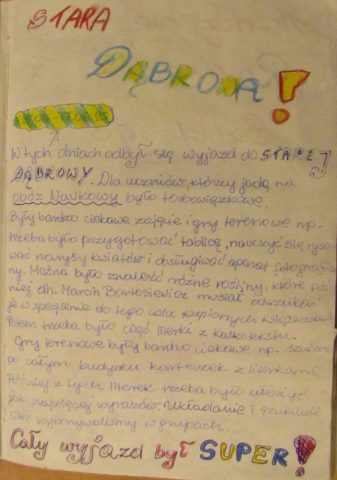 STARA
DĄBROWA!
W tych dniach odbył się wyjazd do STAREJ
DĄBROWY. Dla uczniów, którzy jadą na
obóz Naukowy było to obowiązkowe.
Były bardzo ciekawe zajęcia i gry terenowe np.
trzeba było przygotować tablicę, nauczyć się ryso-
wać kwiatów i obsługiwać aparat
Można było znaleźć różne rośliny, które póź-
niej dh. Marcin Bartosiewicz musiał odszukać
je w specjalnie do tego celu kupionych
Potem trzeba było ciąć literki z
Gry terenowe były bardzo ciekawe np. szukanie
po całym budynku karteczek z literkami.
Później z tych literek trzeba było ułożyć
jak najwięcej wyrazów. Układanie i szukanie
liter wykonywaliśmy w grupach.
Cały wyjazd był SUPER!